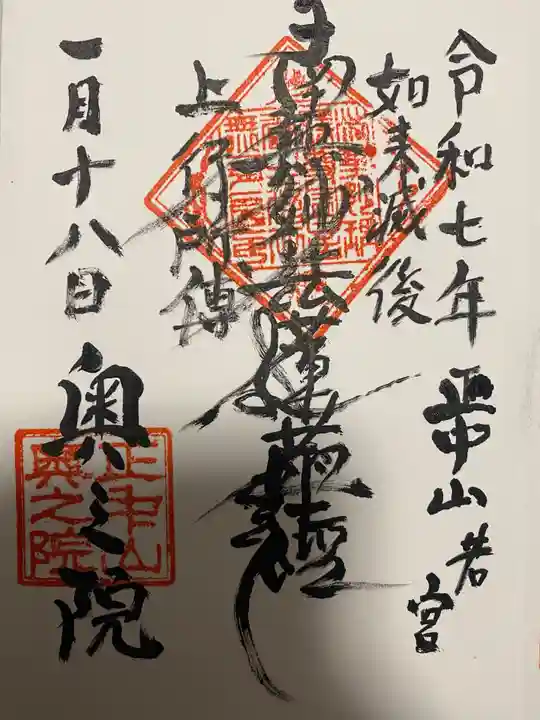 令和七年 正中山若宮
如来滅後
南無妙法蓮華経
上行所傳
一月十八日 奥之院
正中山
奥之院